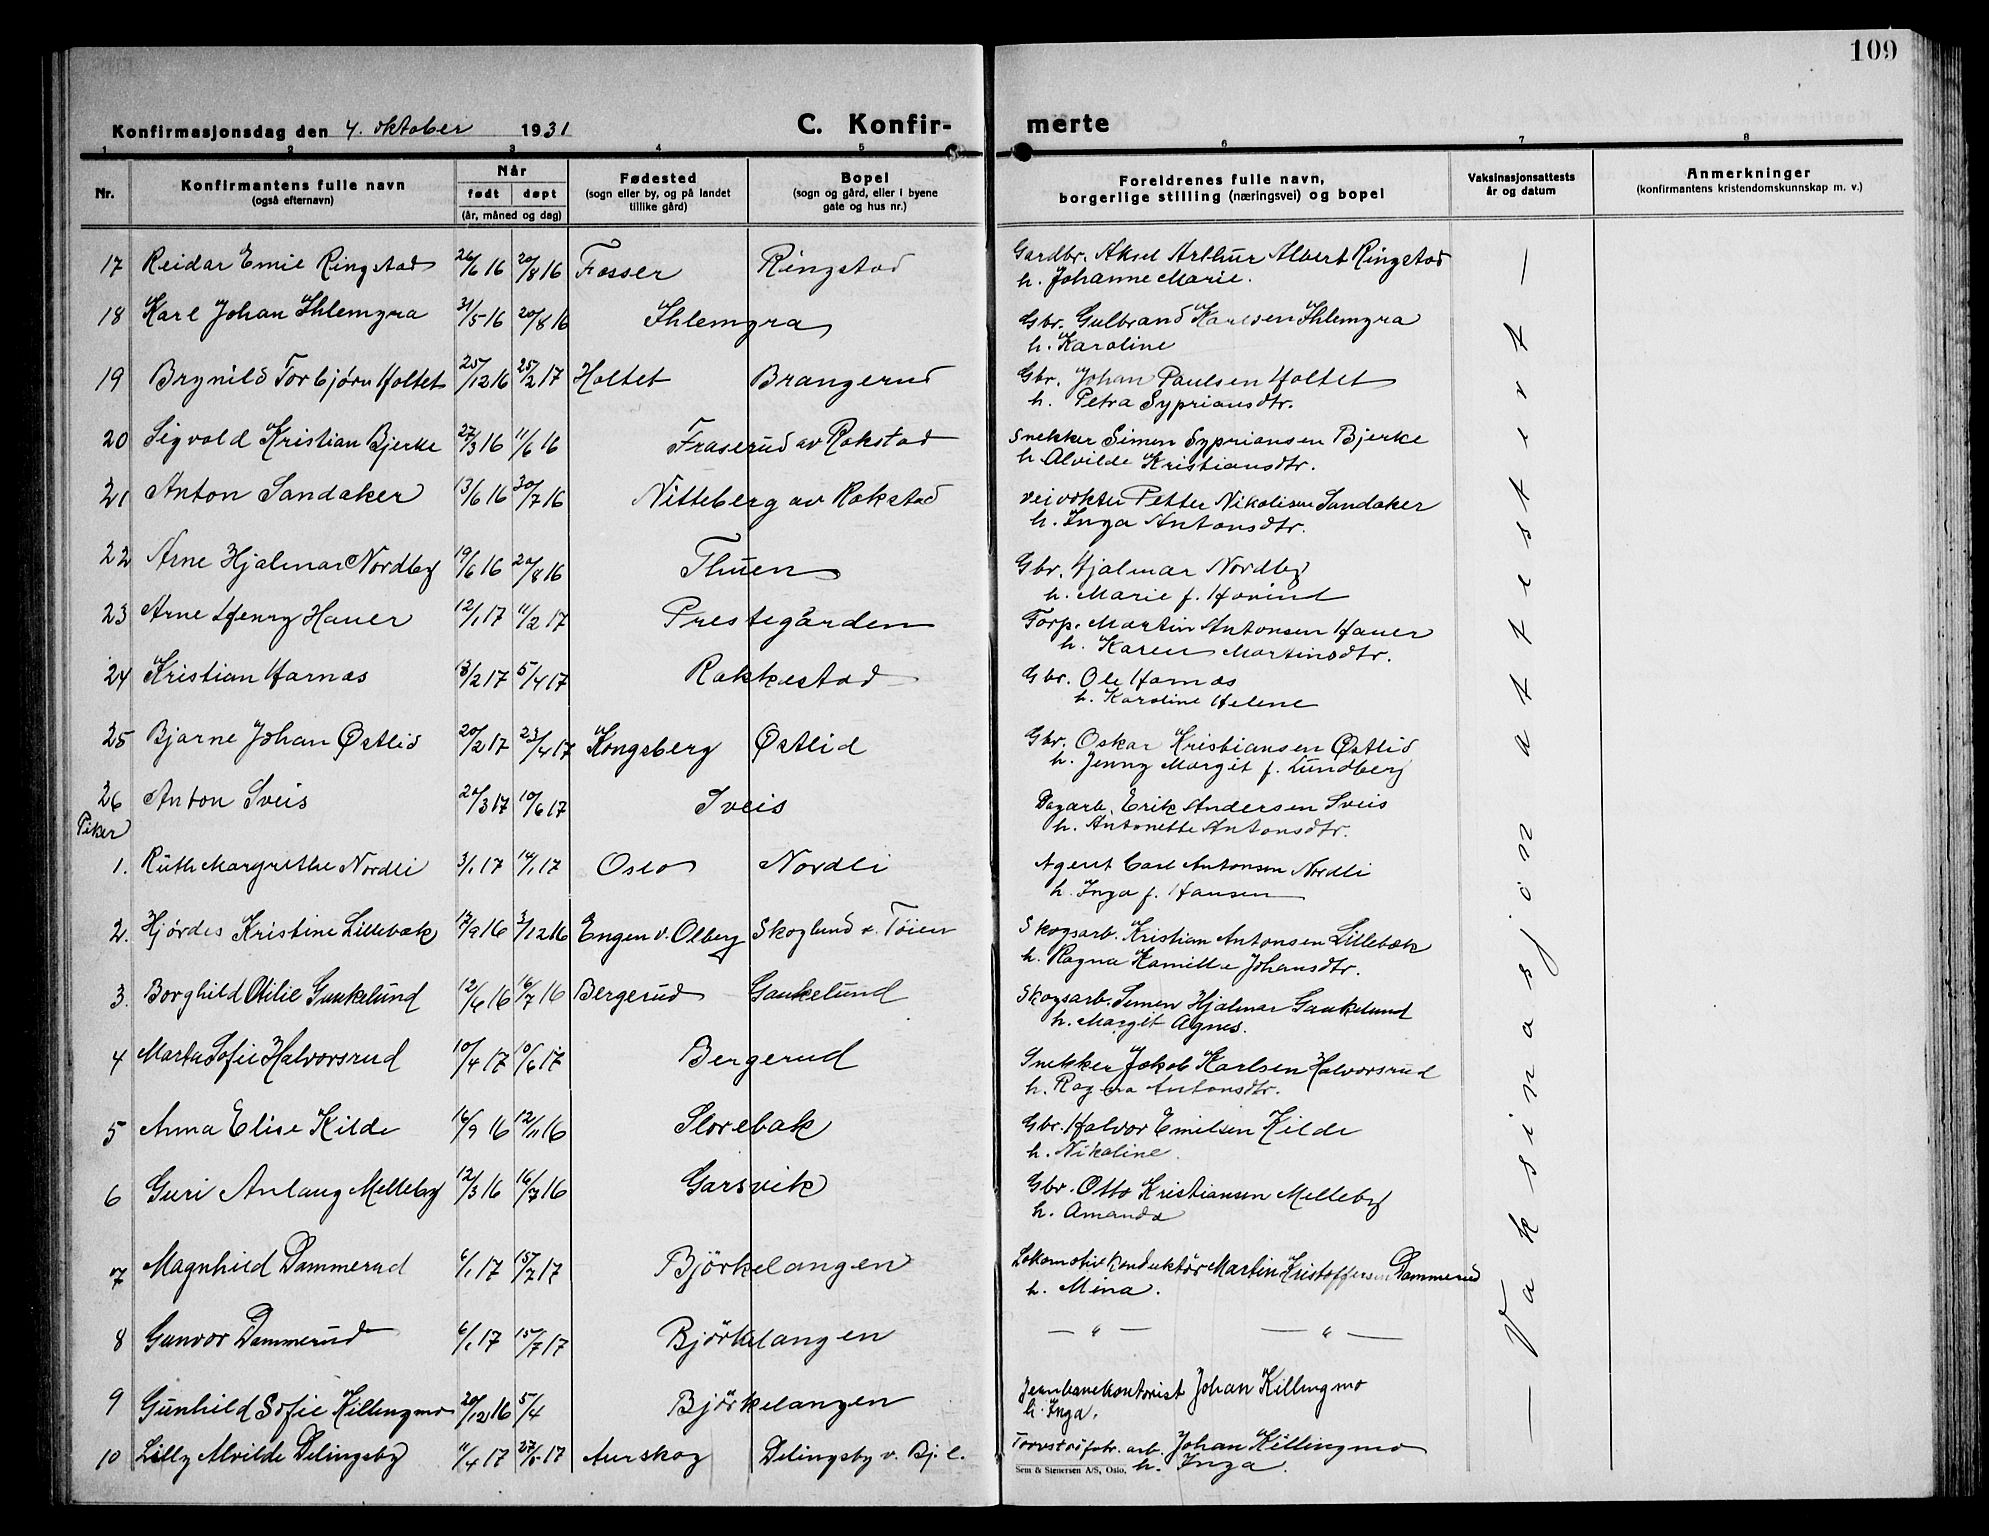 109
Konfirmasjonsdag den 4. oktober 1931 C. Konfir- merte
1 2 3 4 5 6 7 8
Nr. Konfirmantens fulle navn (også efternavn) Når født døpt (år, måned og dag) Fødested (sogn eller by, og på landet tillike gård) Bopel (sogn og gård, eller i byene gate og hus nr.) Foreldrenes fulle navn, borgerlige stilling (næringsvei) og bopel Vaksinasjonsattests år og datum Anmerkninger (konfirmantens kristendomskunnskap m. v.)
17 Reidar Emil Ringstad 26/6 16 20/8 16 Fosser Ringstad Gardbr. Aksel Arthur Albert Ringstad
h. Johanne Marie.
18 Karl Johan Ihlemyra 31/5 16 20/8 16 Ihlemyra Gbr. Gulbrand Karlsen Ihlemyra
h. Karoline
19 Brynild Torbjørn Holtet 25/12 16 25/2 17 Holtet Brangerud Gbr. Johan Paulsen Holtet
h. Petra Sypriansdtr.
20 Sigvald Kristian Bjerke 27/3 16 11/6 16 Fraserud av Rakstad Snekker Simen Sypriansen Bjerke
h. Alvilde Kristiansdtr.
21 Anton Sandaker 13/6 16 30/7 16 Nitteberg av Rakstad Veivokter Petter Nikolisen Sandaker
h. Inga Antonsdtr.
22 Arne Hjalmar Nordby 19/6 16 20/8 16 Thuen Gbr. Hjalmar Nordby
h. Marie f. Hovind
23 Arne Henry Hauer 12/1 17 11/2 17 Prestegården Forp. Martin Antonsen Hauer
h. Karen Martinsdtr.
24 Kristian Harnæs /2 17 5/4 17 Rakkestad Gbr. Ole Harnæs
h. Karoline Helene
25 Bjarne Johan Østlid 20/2 17 23/4 17 Kongsberg Østlid Gbr. Oskar Kristiansen Østlid
h. Jenny Margit f. Lundberg
26 Anton Sveis 20/3 17 10/6 17 Sveis Dagarb. Erik Andersen Sveis
h. Antonette Antonsdtr.
Piker
1. Ruth Margrethe Nordli 3/1 17 14/1 17 Oslo Nordli Agent Carl Antonsen Nordli
h. Inga f. Hansen
2. Hjørdis Kristine Lillebæk 17/9 16 3/12 16 Engen v. Olberg Skoglund v. Tøien Skogsarb. Kristian Antonsen Lillebæk
h. Ragna Kamilla Johansdtr.
3. Borghild Otilie Gaukelund 12/6 16 16/7 16 Bergerud Gaukelund Skogsarb. Simen Hjalmar Gaukelund
h. Margit Agnes.
4 Marta Sofie Halvorsrud 10/4 17 10/6 17 Bergerud Snekker Jakob Karlsen Halvorsrud
h. Ragna Antonsdtr.
5 Anna Elise Kilde 16/9 16 12/11 16 Slorebæk Gbr. Halvor Emilsen Kilde
h. Nikoline.
6 Guri Anlaug Melleby 12/3 16 16/7 16 Garsvik Gbr. Otto Kristiansen Melleby
h. Amanda
7 Magnhild Dammerud 6/1 17 15/7 17 Björkelangen Lokomotivkonduktør Martin Kristoffersen Dammerud
h. Mina.
8 Gunvor Dammerud 6/1 17 15/7 17 Björkelangen — " — — " —
9 Gunhild Sofie Killingmo 20/12 16 5/4 Björkelangen Jernbanekontorist Johan Killingmo
h. Inga.
10 Lilly Alvilde Delingsby 11/4 17 27/5 17 Aurskog Delingsby v. Bj. l. Torvstrøfabr. arb. Johan Killingmo
h. Inga.
Sem & Stenersen A/S, Oslo.
— Vaksinasjonsattestert —